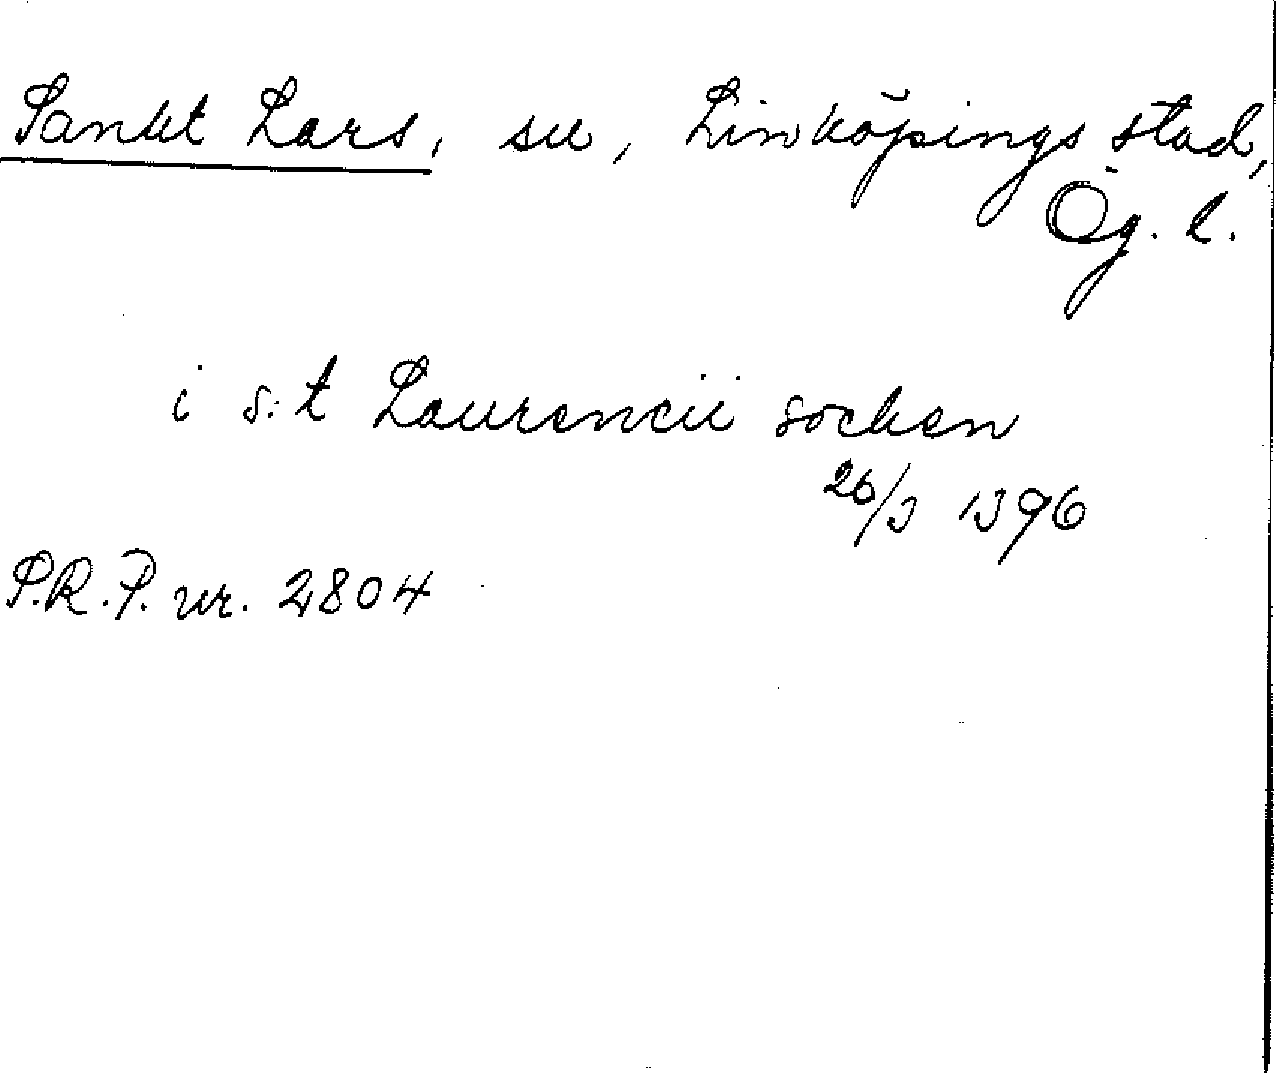 Sankt Lars, sn, Linköpings stad,
Ög. l.
i s:t Laurencii socken
26/3 1396
P.R.P. nr. 2804